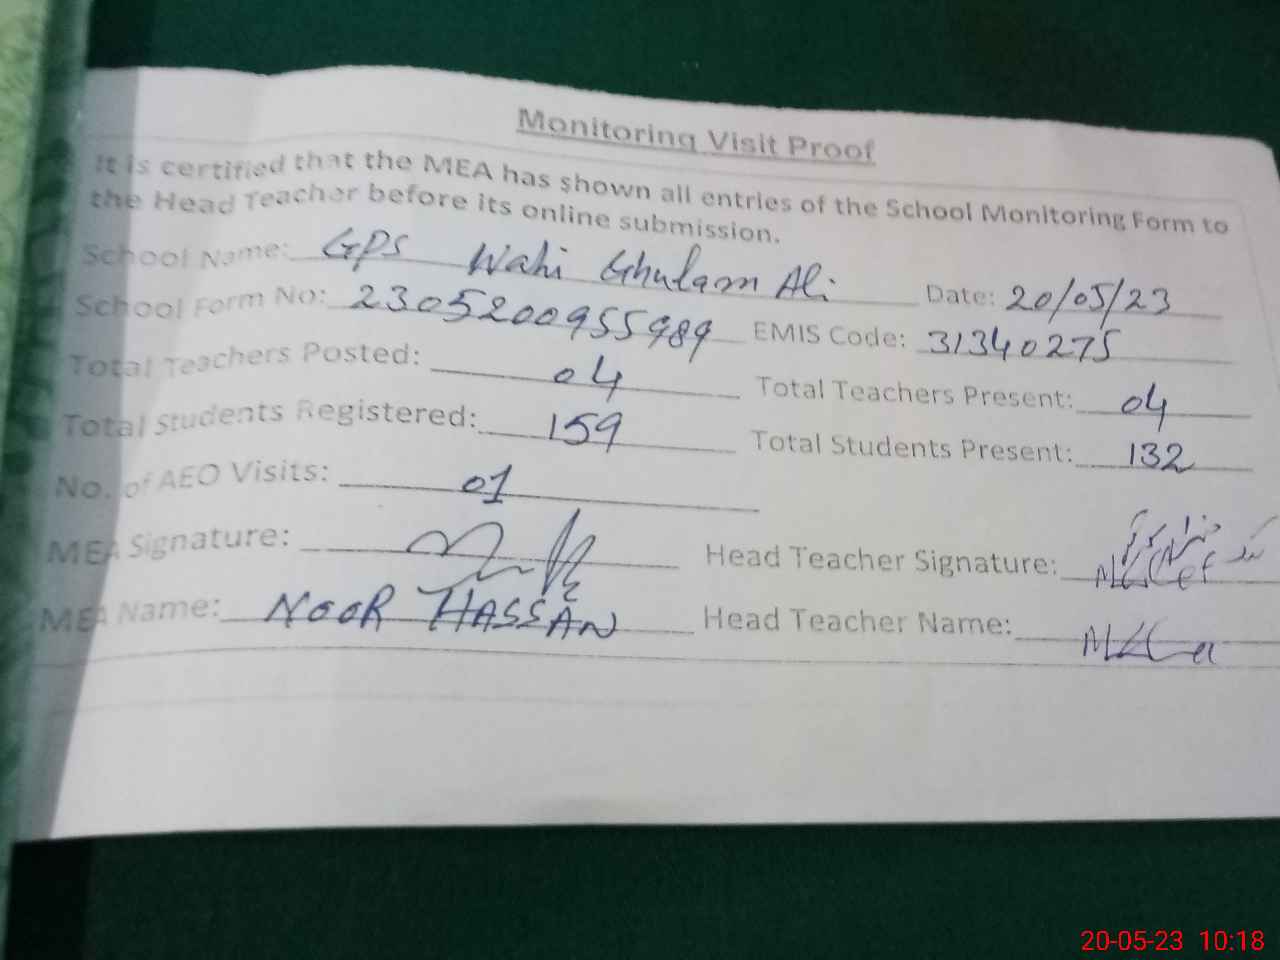 Monitoring Visit Proof
It is certified that the MEA has shown all entries of the School Monitoring Form to
the Head Teacher before its online submission.
School Name: GPS Wahi Ghulam Ali Date: 20/05/23
School Form No: 2305200955989 EMIS Code: 31340275
Total Teachers Posted: 04 Total Teachers Present: 04
Total Students Registered: 159 Total Students Present: 132
No. of AEO Visits: 01
MEA Signature: Head Teacher Signature:
MEA Name: NOOR HASSAN Head Teacher Name:
20-05-23 10:18